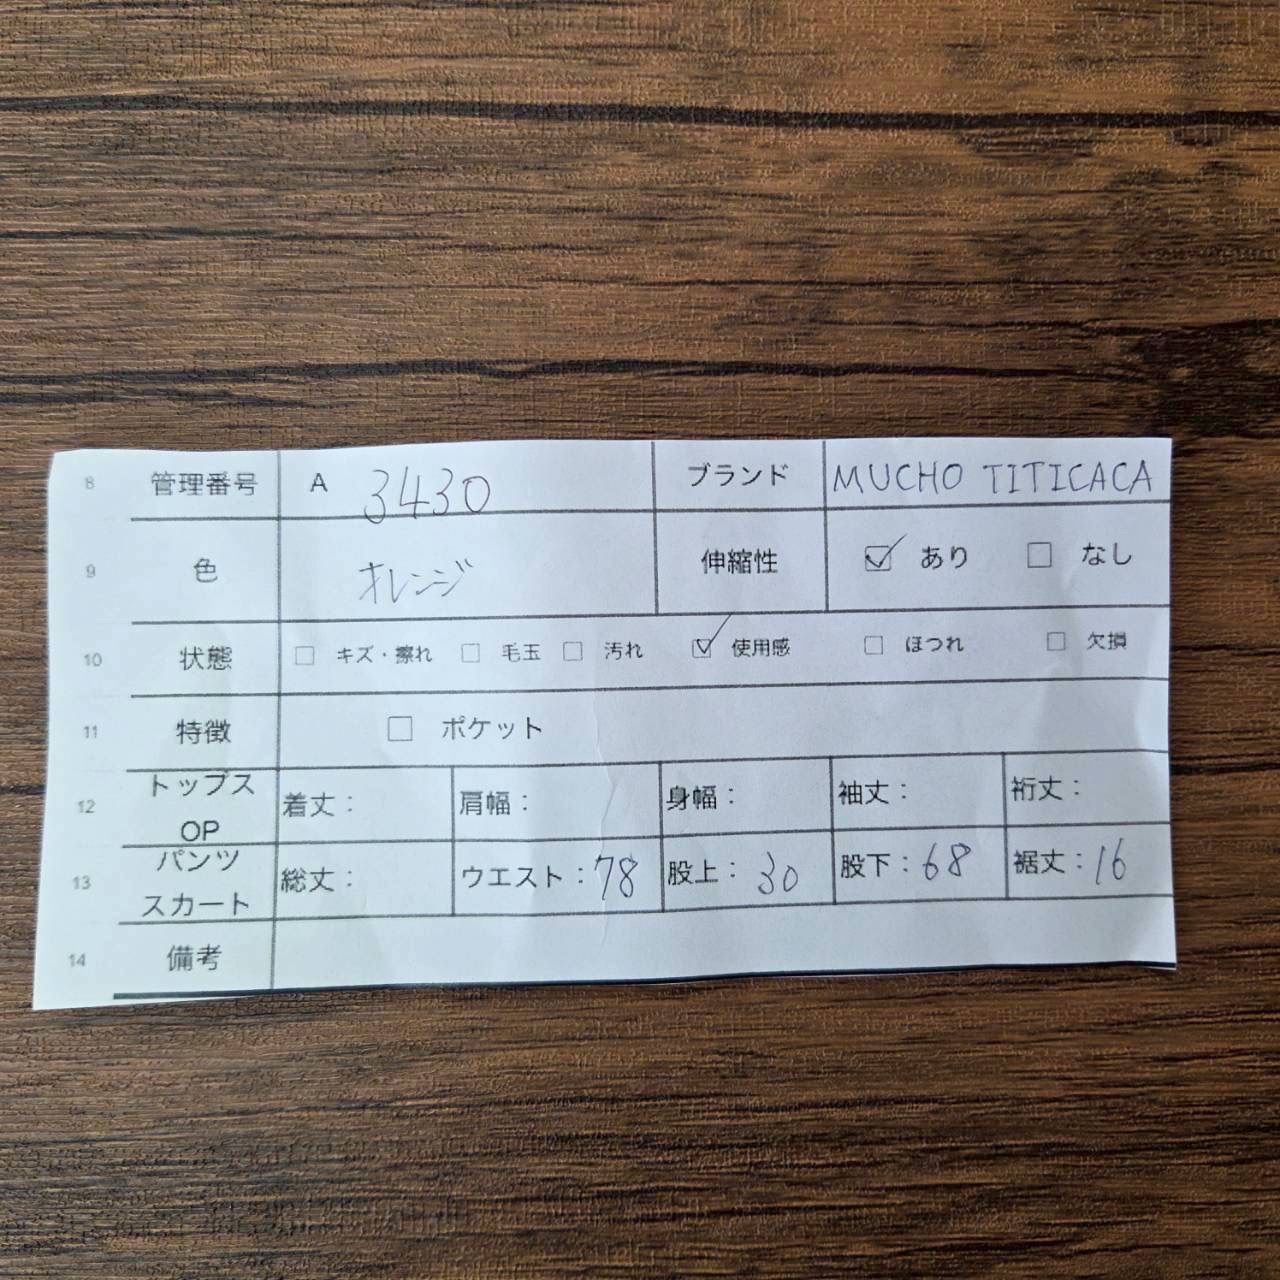 8 管理番号 A 3430 ブランド MUCHO TITICACA
9 色 オレンジ 伸縮性 ☑ あり ☐ なし
10 状態 ☐ キズ・擦れ ☐ 毛玉 ☐ 汚れ ☑ 使用感 ☐ ほつれ ☐ 欠損
11 特徴 ☐ ポケット
12 トップス OP 着丈： 肩幅： 身幅： 袖丈： 裄丈：
13 パンツ スカート 総丈： ウエスト：78 股上：30 股下：68 裾丈：16
14 備考